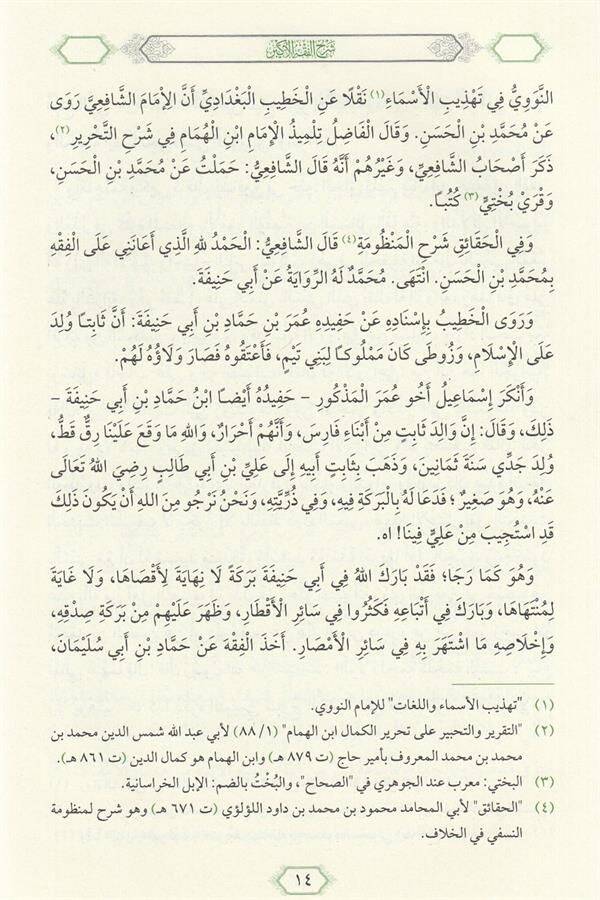 شرح الفقه الأكبر
النَّوَوِيُّ فِي تَهْذِيبِ الْأَسْمَاءِ(١) نَقْلًا عَنِ الْخَطِيبِ الْبَغْدَادِيِّ أَنَّ الْإِمَامَ الشَّافِعِيَّ رَوَى
عَنْ مُحَمَّدِ بْنِ الْحَسَنِ. وَقَالَ الْفَاضِلُ تِلْمِيذُ الْإِمَامِ ابْنِ الْهُمَامِ فِي شَرْحِ التَّحْرِيرِ(٢)،
ذَكَرَ أَصْحَابُ الشَّافِعِيِّ، وَغَيْرُهُمْ أَنَّهُ قَالَ الشَّافِعِيُّ: حَمَلْتُ عَنْ مُحَمَّدِ بْنِ الْحَسَنِ،
وَقْرَيْ بُخْتِيٍّ(٣) كُتُبًا.
وَفِي الْحَقَائِقِ شَرْحِ الْمَنْظُومَةِ(٤) قَالَ الشَّافِعِيُّ: الْحَمْدُ لِلهِ الَّذِي أَعَانَنِي عَلَى الْفِقْهِ
بِمُحَمَّدِ بْنِ الْحَسَنِ. انْتَهَى. مُحَمَّدٌ لَهُ الرِّوَايَةُ عَنْ أَبِي حَنِيفَةَ.
وَرَوَى الْخَطِيبُ بِإِسْنَادِهِ عَنْ حَفِيدِهِ عُمَرَ بْنِ حَمَّادِ بْنِ أَبِي حَنِيفَةَ: أَنَّ ثَابِتًا وُلِدَ
عَلَى الْإِسْلَامِ، وَزُوطَى كَانَ مَمْلُوكًا لِبَنِي تَيْمٍ، فَأَعْتَقُوهُ فَصَارَ وَلَاؤُهُ لَهُمْ.
وَأَنْكَرَ إِسْمَاعِيلُ أَخُو عُمَرَ الْمَذْكُورِ - حَفِيدُهُ أَيْضًا ابْنُ حَمَّادِ بْنِ أَبِي حَنِيفَةَ -
ذَلِكَ، وَقَالَ: إِنَّ وَالِدَ ثَابِتٍ مِنْ أَبْنَاءِ فَارِسَ، وَأَنَّهُمْ أَحْرَارٌ، وَاللهِ مَا وَقَعَ عَلَيْنَا رِقٌّ قَطُّ،
وُلِدَ جَدِّي سَنَةَ ثَمَانِينَ، وَذَهَبَ بِثَابِتٍ أَبِيهِ إِلَى عَلِيِّ بْنِ أَبِي طَالِبٍ رَضِيَ اللهُ تَعَالَى
عَنْهُ، وَهُوَ صَغِيرٌ؛ فَدَعَا لَهُ بِالْبَرَكَةِ فِيهِ، وَفِي ذُرِّيَّتِهِ، وَنَحْنُ نَرْجُو مِنَ اللهِ أَنْ يَكُونَ ذَلِكَ
قَدِ اسْتُجِيبَ مِنْ عَلِيٍّ فِينَا! اه.
وَهُوَ كَمَا رَجَا؛ فَقَدْ بَارَكَ اللهُ فِي أَبِي حَنِيفَةَ بَرَكَةً لَا نِهَايَةَ لِأَقْصَاهَا، وَلَا غَايَةَ
لِمُنْتَهَاهَا، وَبَارَكَ فِي أَتْبَاعِهِ فَكَثُرُوا فِي سَائِرِ الْأَقْطَارِ، وَظَهَرَ عَلَيْهِمْ مِنْ بَرَكَةِ صِدْقِهِ،
وَإِخْلَاصِهِ مَا اشْتَهَرَ بِهِ فِي سَائِرِ الْأَمْصَارِ. أَخَذَ الْفِقْهَ عَنْ حَمَّادِ بْنِ أَبِي سُلَيْمَانَ،
(١) "تهذيب الأسماء واللغات" للإمام النووي.
(٢) "التقرير والتحبير على تحرير الكمال ابن الهمام" (١/ ٨٨) لأبي عبد الله شمس الدين محمد بن
محمد بن محمد المعروف بأمير حاج (ت ٨٧٩ هـ) وابن الهمام هو كمال الدين (ت ٨٦١ هـ).
(٣) البختي: معرب عند الجوهري في "الصحاح"، والبُخْتُ بالضم: الإبل الخراسانية.
(٤) "الحقائق" لأبي المحامد محمود بن محمد بن داود اللؤلؤي (ت ٦٧١ هـ) وهو شرح لمنظومة
النسفي في الخلاف.
١٤